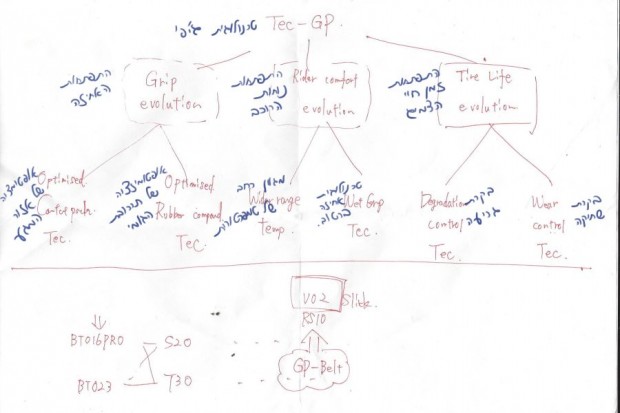 טכנולוגית ג'יפי Tec-GP.
התפתחות
האחיזה
Grip
evolution
התפתחות
נוחות
הרוכב
Rider comfort
evolution
התפתחות
זמן חיי
הצמיג
Tire Life
evolution
אופטימיזציה
של
אזור
המגע
Optimised
Contact patch
Tec.
אופטימיזציה
של תרכובת
הגומי
Optimised
Rubber compound
Tec.
מגוון רחב
של טמפרטורות
Wider range
temp.
טכנולוגית
אחיזה
ברטוב
Wet Grip
Tec.
Degradation
control
Tec.
בקרת
גריעה
Wear
control
Tec.
בקרת
שחיקה
V02 Slick
RS10
GP-Belt
BT016PRO S20
BT023 T30